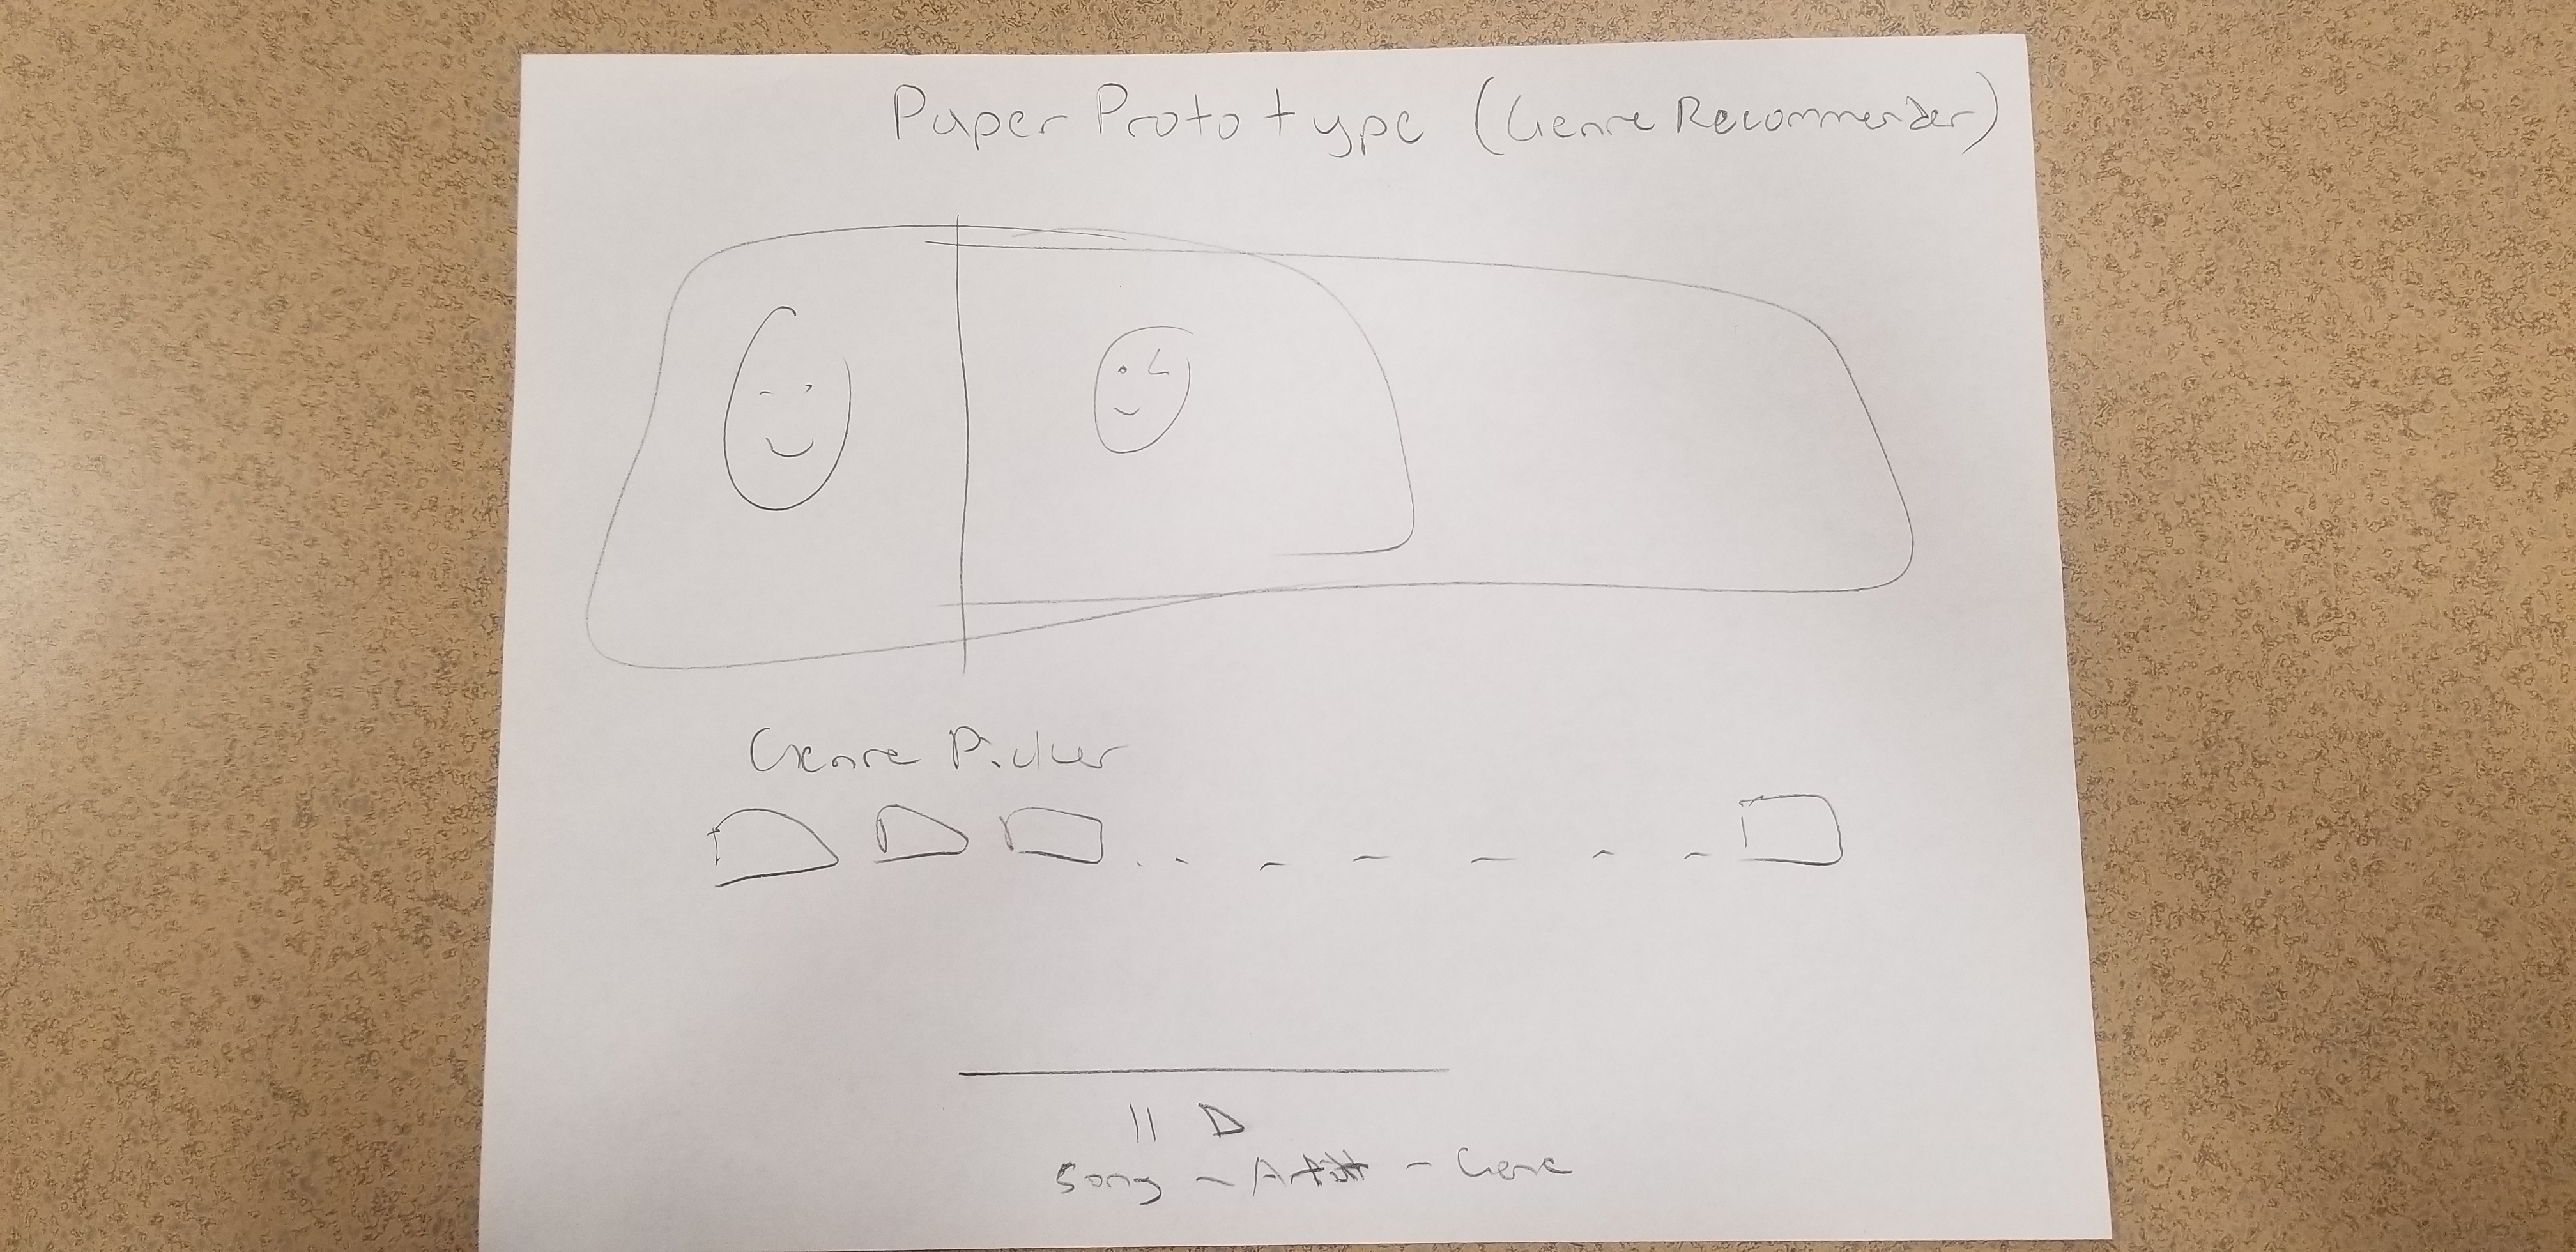 Paper Prototype (Genre Recommender)
Genre Picker
Song - Artist - Genre